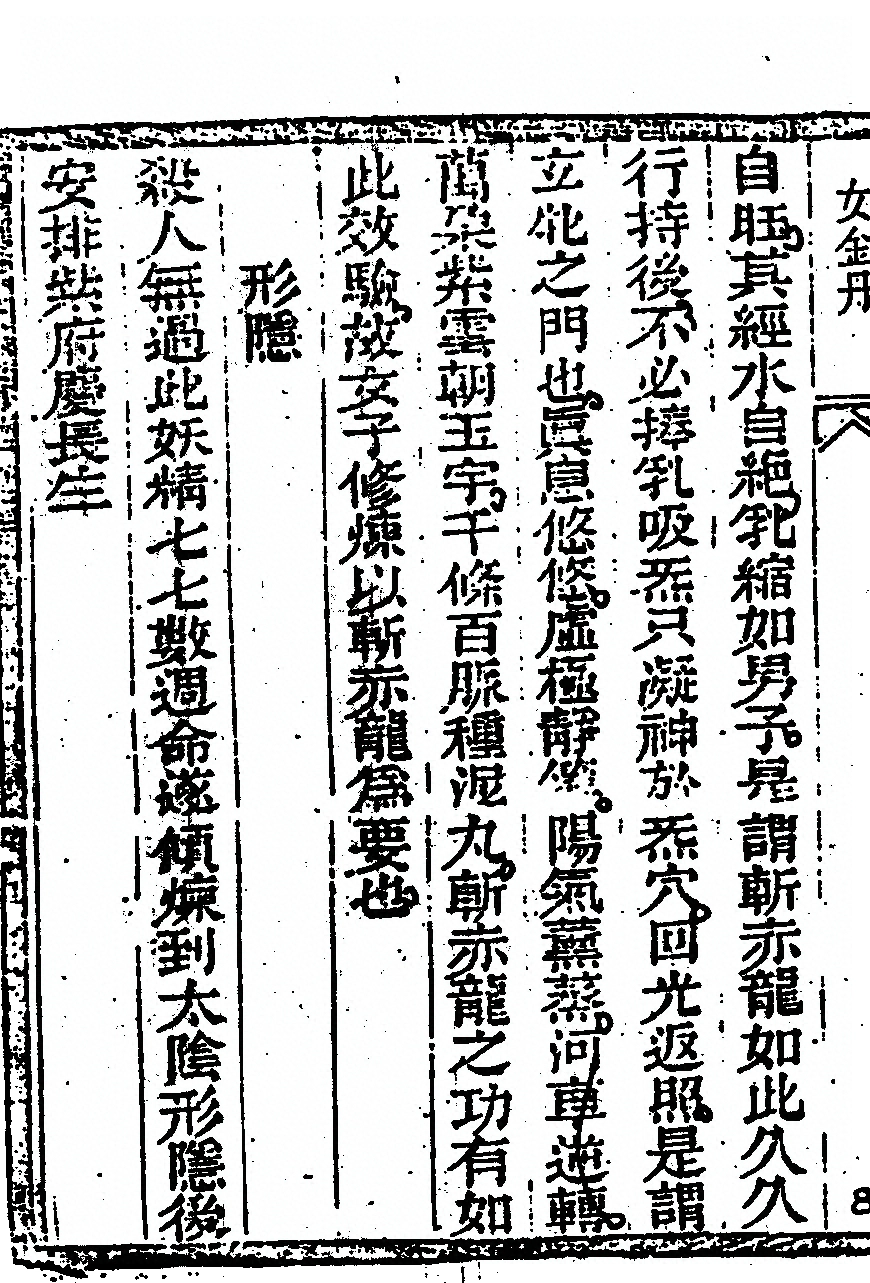 女金丹 八 8
自眶其經水自絕乳縮如男子是謂斬赤龍如此久久
行持後不必捧乳吸炁只凝神於炁穴回光返照是謂
立牝之門也眞息悠悠虛極靜篤陽氣薰蒸河車逆轉
萬朶紫雲朝玉宇千條百脈種泥丸斬赤龍之功有如
此效驗故女子修煉以斬赤龍爲要也
形隱
殺人無過此妖精七七數週命遂傾煉到太陰形隱後
安排紫府慶長生